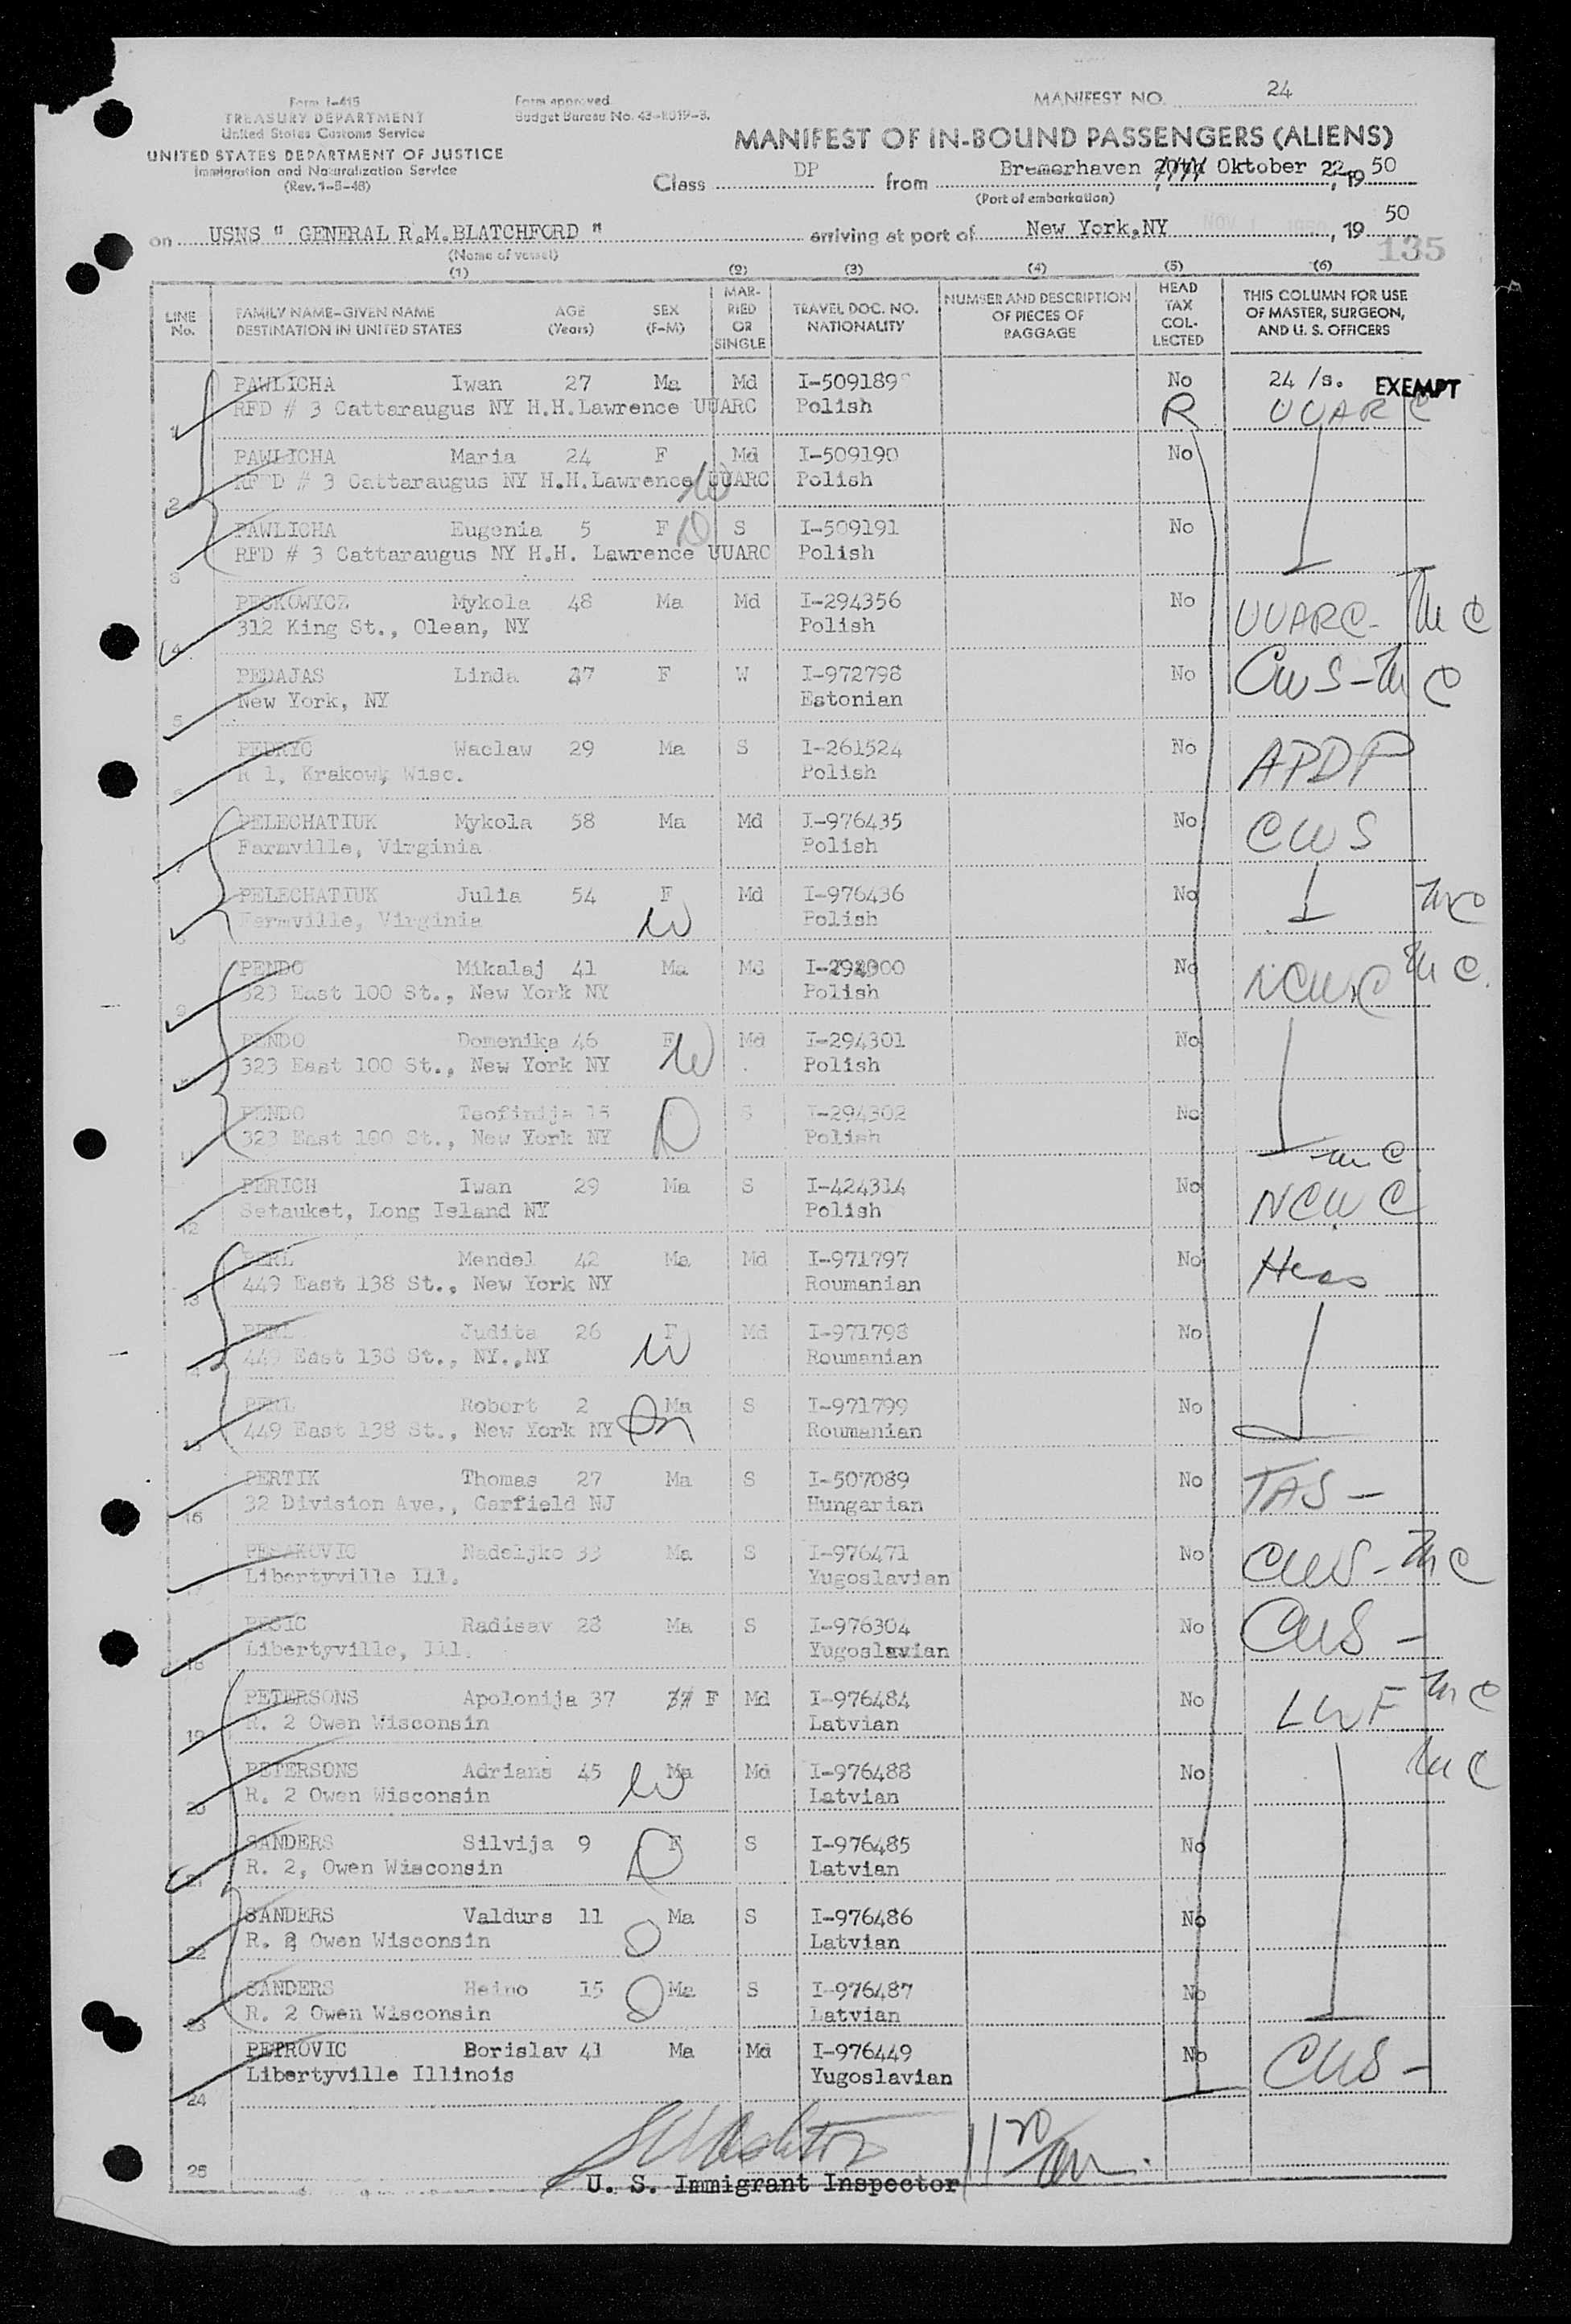 Form I-415
TREASURY DEPARTMENT
United States Customs Service
UNITED STATES DEPARTMENT OF JUSTICE
Immigration and Naturalization Service
(Rev. 1-5-48)
Form approved.
Budget Bureau No. 43-R019-3.
MANIFEST NO. 24
MANIFEST OF IN-BOUND PASSENGERS (ALIENS)
Class DP from Bremerhaven Oktober 22, 19 50
(Port of embarkation)
on USNS " GENERAL R.M.BLATCHFORD " arriving at port of New York,NY NOV 1 1950, 19 50
(Name of vessel)
135
(1) (2) (3) (4) (5) (6)
LINE No. FAMILY NAME-GIVEN NAME DESTINATION IN UNITED STATES AGE (Years) SEX (F-M) MARRIED OR SINGLE TRAVEL DOC. NO. NATIONALITY NUMBER AND DESCRIPTION OF PIECES OF BAGGAGE HEAD TAX COLLECTED THIS COLUMN FOR USE OF MASTER, SURGEON, AND U. S. OFFICERS
PAWLICHA Iwan 27 Ma Md I-509189 No 24 /s. EXEMPT
1 RFD # 3 Cattaraugus NY H.H.Lawrence UUARC Polish R UUARC
PAWLICHA Maria 24 F Md I-509190 No
2 RFD # 3 Cattaraugus NY H.H.Lawrence UUARC Polish W
PAWLICHA Eugenia 5 F D S I-509191 No
3 RFD # 3 Cattaraugus NY H.H. Lawrence UUARC Polish
PECKOWYCZ Mykola 48 Ma Md I-294356 No UUARC-
4 312 King St., Olean, NY Polish
PEDAJAS Linda 47 F W I-972798 No CWS-
5 New York, NY Estonian
PEDRYC Waclaw 29 Ma S I-261524 No APDP
6 R 1, Krakow, Wisc. Polish
PELECHATIUK Mykola 58 Ma Md I-976435 No CWS
7 Farmville, Virginia Polish
PELECHATIUK Julia 54 F Md I-976436 No
8 Farmville, Virginia W Polish
PENDO Mikalaj 41 Ma Md I-294300 No NCWC
9 323 East 100 St., New York NY Polish
PENDO Domenika 46 F W Md I-294301 No
323 East 100 St., New York NY Polish
PENDO Teofinija 15 D S I-294302 No
11 323 East 100 St., New York NY Polish
PERICH Iwan 29 Ma S I-424314 No NCWC
12 Setauket, Long Island NY Polish
PERL Mendel 42 Ma Md I-971797 No Hias
13 449 East 138 St., New York NY Roumanian
PERL Judita 26 F Md I-971798 No
14 449 East 138 St., NY.,NY W Roumanian
PERL Robert 2 Ma S I-971799 No
15 449 East 138 St., New York NY Roumanian
PERTIK Thomas 27 Ma S I-507089 No TAS -
16 32 Division Ave., Garfield NJ Hungarian
PESAKOVIC Nadeljko 33 Ma S I-976471 No CWS-
17 Libertyville Ill. Yugoslavian
PESIC Radisav 28 Ma S I-976304 No CWS -
18 Libertyville, Ill. Yugoslavian
PETERSONS Apolonija 37 F Md I-976484 No LWF
19 R. 2 Owen Wisconsin Latvian
PETERSONS Adrians 45 Ma Md I-976488 No
20 R. 2 Owen Wisconsin W Latvian
SANDERS Silvija 9 F S I-976485 No
21 R. 2, Owen Wisconsin D Latvian
SANDERS Valdurs 11 Ma S I-976486 No
22 R. 2 Owen Wisconsin Latvian
SANDERS Heino 15 Ma S I-976487 No
23 R. 2 Owen Wisconsin Latvian
PETROVIC Borislav 41 Ma Md I-976449 No CWS -
Libertyville Illinois Yugoslavian
24
25
U. S. Immigrant Inspector